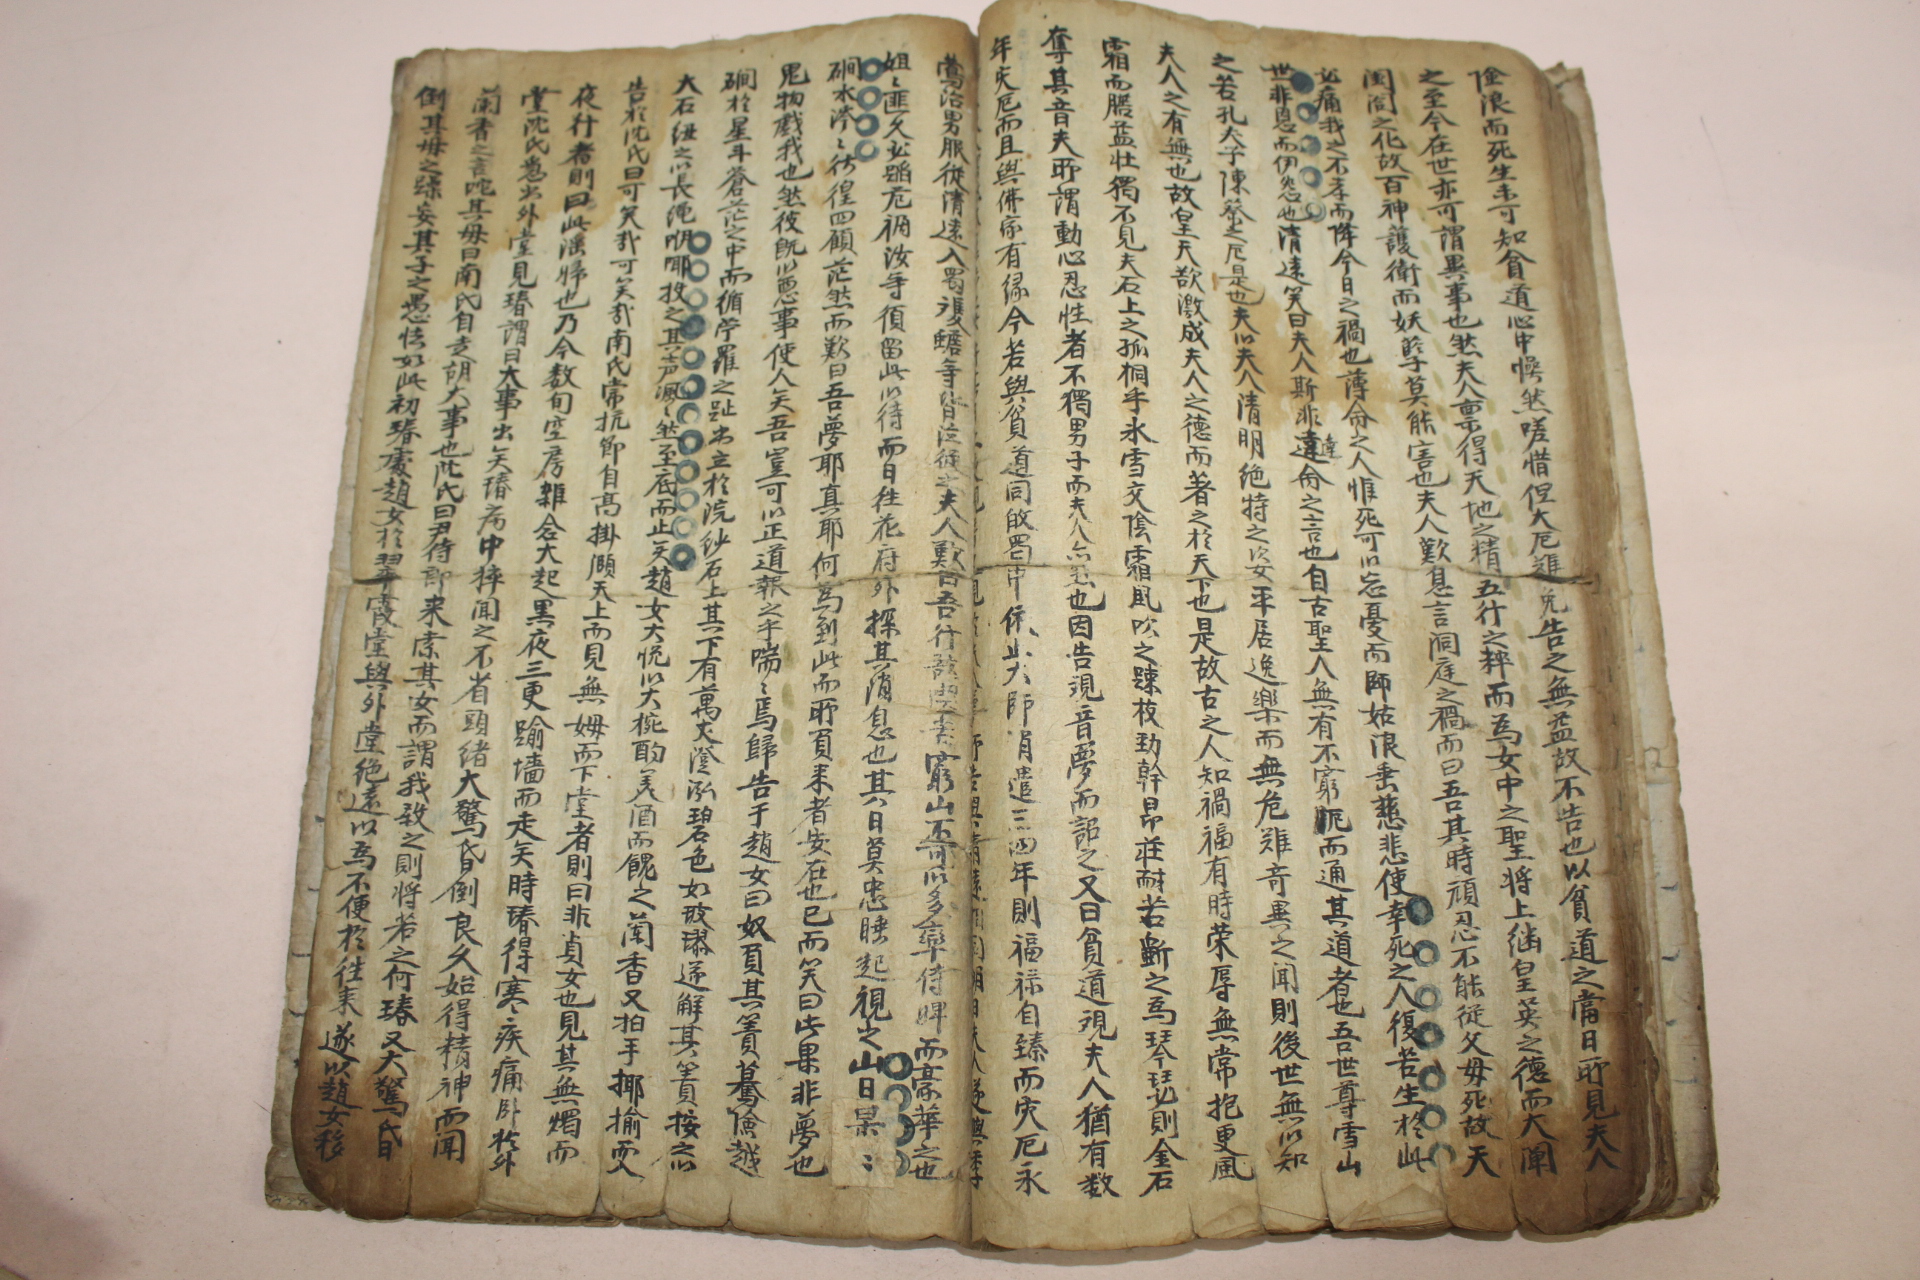 之至今在世亦可謂異事也然夫人禀得天地之精五行之粹而爲女中之聖將上继皇英之德而大闡
閨閤之化故百神護衛而妖孽莫能害也夫人歎息言洞庭之禍而曰吾其時頑忍不能従父母死故天
痛我之不孝而降今日之禍也薄命之人惟死可以忘憂而師姑浪垂慈悲使幸死之人復苦生於此
世非恩而伊怨也清遠笑曰夫人斯非達命之言也自古聖人無有不窮厄而通其道者也吾世尊雪山
之若孔夫子陳蔡之厄是也夫以夫人清明絶特之姿平居逸樂而無危難奇異之聞則後世無以知
夫人之有無也故皇天欲激成夫人之德而著之於天下也是故古之人知禍福有時荣辱無常抱更風
霜而膓益壮獨不見夫石上之孤桐乎氷雪交陰霜風吹之踈枝勁幹昂莊耐苦斷之爲琴瑟則金石
奪其音夫所謂動心忍性者不獨男子而夫人亦宜也因告現音夢而詔之又曰貧道視夫人猶有数
年灾厄而且與佛家有緣今若與貧道同啟蜀中依止大師消遣三四年則福禄自臻而灾厄永
鶯治男服從清遠入蜀
姐〻匪久必蹈危禍汝等須留此以待而日往花府外探其消息也其八日莫忠睡起視之山日杲〻
磵水泠〻彷徨四顧茫然而歎曰吾夢耶真耶何爲到此而所負来者安在也已而笑曰此果非夢也
鬼物戲我也然彼既以惡事使人矣吾豈可以正道報之乎喘〻焉歸告于趙女曰奴負其簀驀儉越
磵於星斗蒼茫之中而循学羅之趾出立於浣紗石上其下有萬丈澄泓碧色如玻瓈遂解其簀按之以
大石纽之以長繩咿唧投之其声渢〻然至底而止矣趙女大悦以大椀酌美酒而餽之蘭香又拍手揶揄而入
告於沈氏曰可笑哉可笑哉南氏常抗節自高掛顏天上而見無姆而下堂者則曰非貞女也見其無燭而
夜行者則曰此滛婦也乃今数旬空房雜念大起黑夜三更踰墙而走矣時瑃得寒疾痛卧於外
堂沈氏急出外堂見瑃謂曰大事出矣瑃病中猝聞之不省頭緒大驚昏倒良久始得精神而聞
蘭香之言咤其母曰南氏自走胡大事也沈氏曰尹侍郎来索其女而謂我致之則將若之何瑃又大驚昏
倒其母之躁妄其子之愚怯如此初瑃處趙女於翠霞堂與外堂絶遠以爲不便於往来遂以趙女移